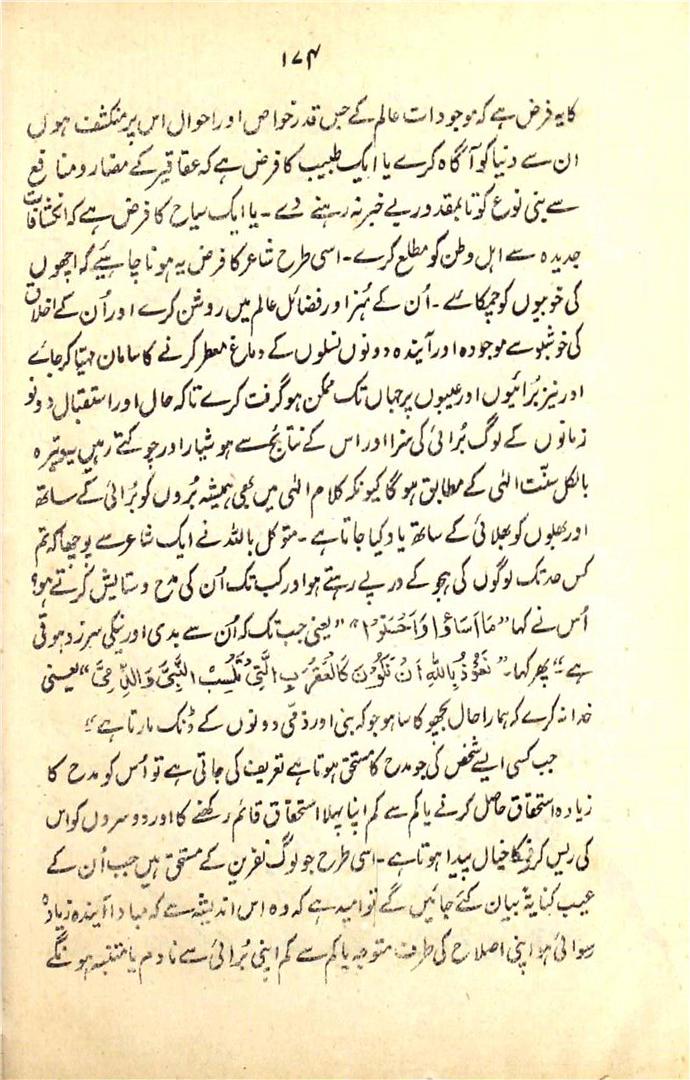 ۱۷۴
کا یہ فرض ہے کہ موجودات عالم کے جس قدر خواص اور احوال اس پر منکشف ہوں
ان سے دنیا کو آگاہ کرے یا ایک طبیب کا فرض ہے کہ عقاقیر کے مضار و منافع
سے بنی نوع کو تا بمقدور بے خبر نہ رہنے دے ۔ یا ایک سیاح کا فرض ہے کہ انکشافات
جدیدہ سے اہل وطن کو مطلع کرے ۔ اسی طرح شاعر کا فرض یہ ہونا چاہیئے کہ اچھوں
کی خوبیوں کو چمکائے ۔ اُن کے ہُنر اور فضائل عالم میں روشن کرے اور اُن کے اخلاق
کی خوشبو سے موجودہ اور آیندہ دونوں نسلوں کے دماغ معطر کرنے کا سامان مہیّا کر جائے
اور نیز بُرائیوں اور عیبوں پر جہاں تک ممکن ہو گرفت کرے تاکہ حال اور استقبال دونو
زمانوں کے لوگ بُرائی کی سزا اور اس کے نتائج سے ہوشیار اور چوکتے رہیں یہ
بالکل سنّت الٰہی کے مطابق ہو گا کیونکہ کلام الٰہی میں بھی ہمیشہ بُروں کو بُرائی کے ساتھ
اور بھلوں کو بھلائی کے ساتھ یاد کیا جاتا ہے ۔ متوکل باللہ نے ایک شاعر سے پوچھا کہ تم
کس حد تک لوگوں کی ہجو کے درپے رہتے ہو اور کب تک اُن کی مدح و ستایش کرتے ہو؟
اُس نے کہا ”مَا اَسَاؤُا وَاَحْسَنُوْا“ ”یعنی جب تک کہ اُن سے بدی اور نیکی سرزد ہوتی
ہے“ پھر کہا ۔ ”نَعُوْذُ بِاللّٰہِ اَنْ نَّکُوْنَ کَالْعَقْرَبِ الَّتِیْ تَلْسِبُ النَّبِیَّ وَالذِّمِّیَّ“ یعنی
خدا نہ کرے کہ ہمارا حال بچھو کا سا ہو جو کہ نبی اور ذمّی دونوں کے ڈنک مارتا ہے“
جب کسی ایسے شخص کی جو مدح کا مستحق ہوتا ہے تعریف کی جاتی ہے تو اُس کو مدح کا
زیادہ استحقاق حاصل کرنے یا کم سے کم اپنا پہلا استحقاق قائم رکھنے کا اور دوسروں کو اس
کی ریس کرنیکا خیال پیدا ہوتا ہے ۔ اسی طرح جو لوگ نفرین کے مستحق ہیں جب اُن کے
عیب کنایۃً بیان کئے جائیں گے تو امید ہے کہ وہ اس اندیشہ سے کہ مبادا آیندہ زیادہ
رسوائی ہو اپنی اصلاح کی طرف متوجہ یا کم سے کم اپنی بُرائی سے نادم یا متنبہ ہونگے